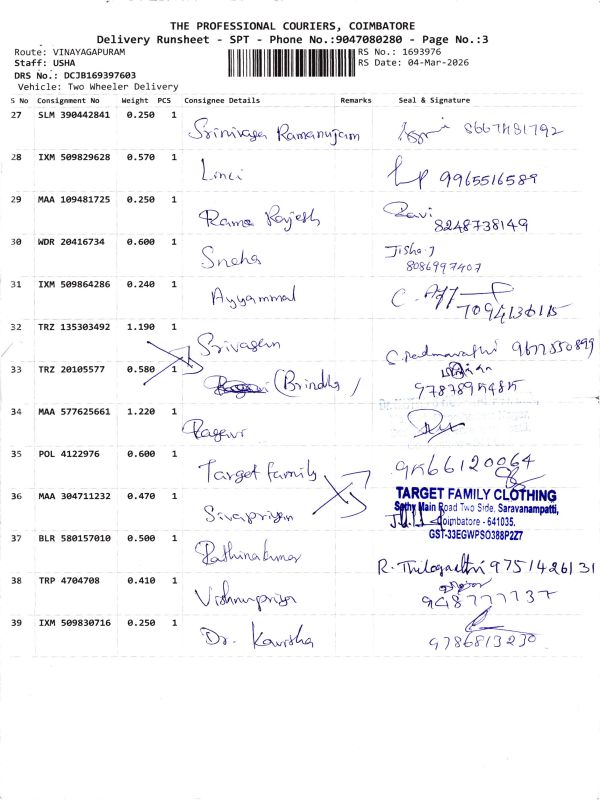 THE PROFESSIONAL COURIERS, COIMBATORE
Delivery Runsheet - SPT - Phone No.:9047080280 - Page No.:3
Route: VINAYAGAPURAM RS No.: 1693976
Staff: USHA RS Date: 04-Mar-2026
DRS No.: DCJB169397603
Vehicle: Two Wheeler Delivery
S No Consignment No Weight PCS Consignee Details Remarks Seal & Signature
27 SLM 390442841 0.250 1
Srinivasa Ramanujam
28 IXM 509829628 0.570 1
Linci 9965516589
29 MAA 109481725 0.250 1
Rama Rajesh Ravi
8248738149
30 WDR 20416734 0.600 1
Sneha Jisha.J
8086997407
31 IXM 509864286 0.240 1
Ayyammal
7094136115
32 TRZ 135303492 1.190 1
Srivasan C.Padmavathi 9677550899
33 TRZ 20105577 0.580 1
(Brindha)
34 MAA 577625661 1.220 1
35 POL 4122976 0.600 1
Target family 9566120064
36 MAA 304711232 0.470 1
Sivapriyan
TARGET FAMILY CLOTHING
Sathy Main Road Two Side, Saravanampatti,
Coimbatore - 641035.
GST-33EGWPS0388P2Z7
37 BLR 580157010 0.500 1
Rathinakumar R. Thilogadhi 9751426131
38 TRP 4704708 0.410 1
Vishnupriya
39 IXM 509830716 0.250 1
Dr. Kavisha
9786813230